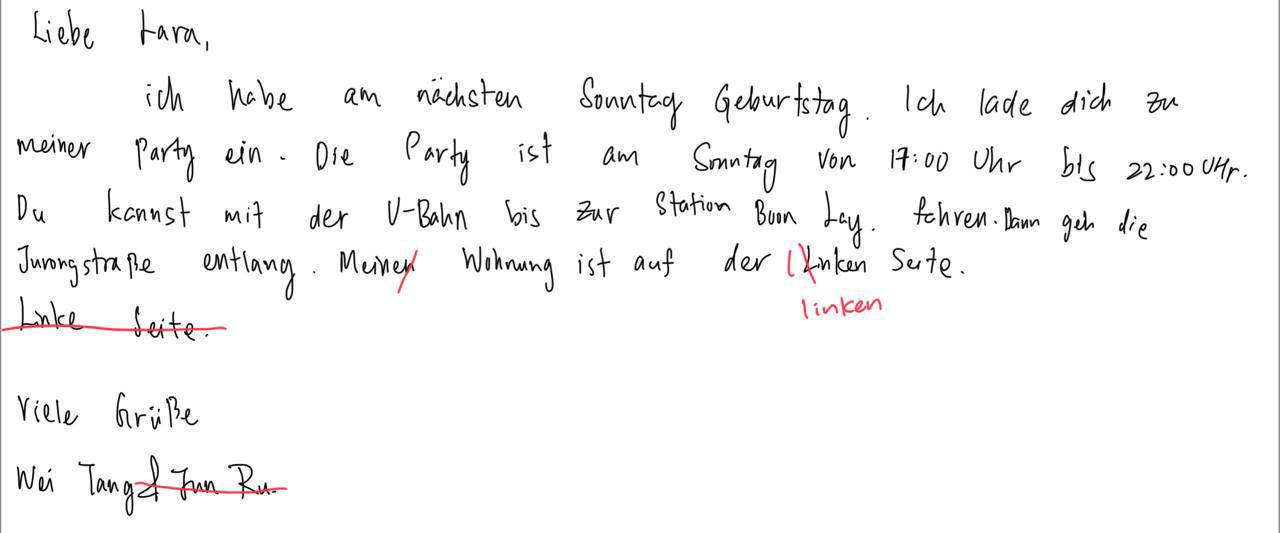 Liebe Lara,
ich habe am nächsten Sonntag Geburtstag. Ich lade dich zu
meiner Party ein. Die Party ist am Sonntag von 17:00 Uhr bis 22:00 Uhr.
Du kannst mit der U-Bahn bis zur Station Boon Lay. fahren. Dann geh die
Jurongstraße entlang. Meiner Wohnung ist auf der Linken Seite.
linken
Linke Seite.
Viele Grüße
Wei Tang & Jun Ru.